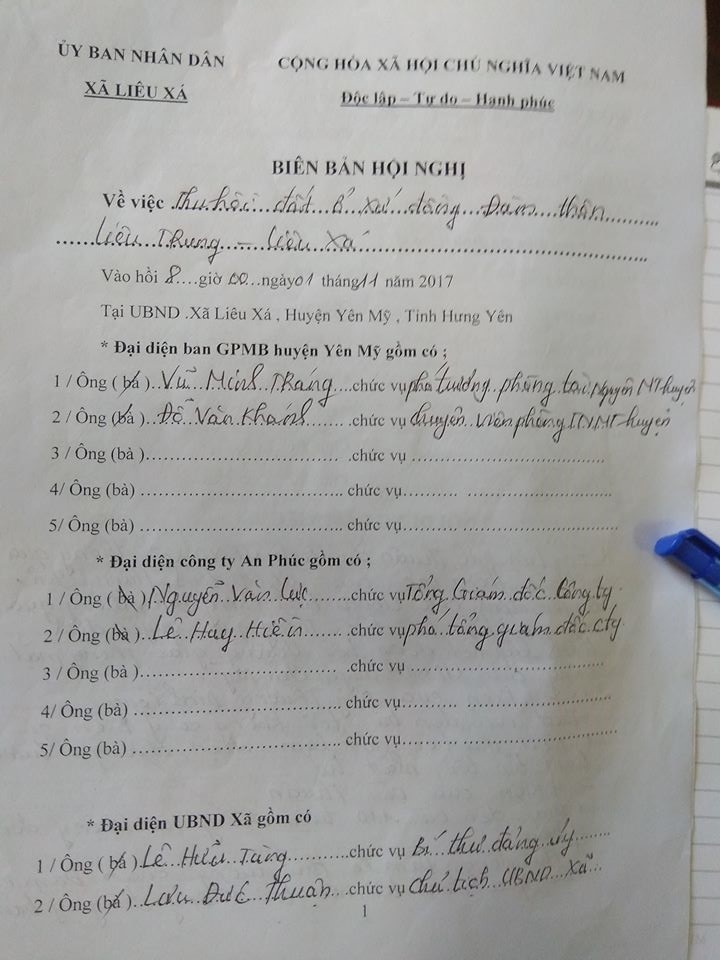 ỦY BAN NHÂN DÂN CỘNG HÒA XÃ HỘI CHỦ NGHĨA VIỆT NAM
XÃ LIÊU XÁ Độc lập – Tự do – Hạnh phúc
BIÊN BẢN HỘI NGHỊ
Về việc Thu hồi đất ở xứ đồng Đầm thân
Liêu Trung – Liêu Xá
Vào hồi 8 giờ 00 ngày 01 tháng 11 năm 2017
Tại UBND .Xã Liêu Xá , Huyện Yên Mỹ , Tỉnh Hưng Yên
* Đại diện ban GPMB huyện Yên Mỹ gồm có ;
1 / Ông ( bà )..Vũ Minh Trang....chức vụ phó trưởng phòng tài Nguyên MT huyện
2 / Ông (bà )..Đỗ Văn Khanh........ chức vụ chuyên viên phòng TNMT huyện
3 / Ông (bà )................................... .chức vụ ...................................
4/ Ông (bà) ................................... chức vụ.......... .........................
5/ Ông (bà) ................................... chức vụ.......... .........................
* Đại diện công ty An Phúc gồm có ;
1 / Ông ( bà ) Nguyễn Văn Lực.........chức vụ Tổng Giám đốc Công ty
2 / Ông (bà )..Lê Huy Hiên........ .chức vụ phó tổng giám đốc cty
3 / Ông (bà )................................... .chức vụ ...................................
4/ Ông (bà) ................................... chức vụ.......... .........................
5/ Ông (bà) ................................... chức vụ.......... .........................
* Đại diện UBND Xã gồm có
1 / Ông ( bà )..Lê Hữu Tùng............chức vụ Bí thư đảng ủy........
2 / Ông (bà )..Lưu Đức Thuận...chức vụ chủ tịch UBND Xã...
1